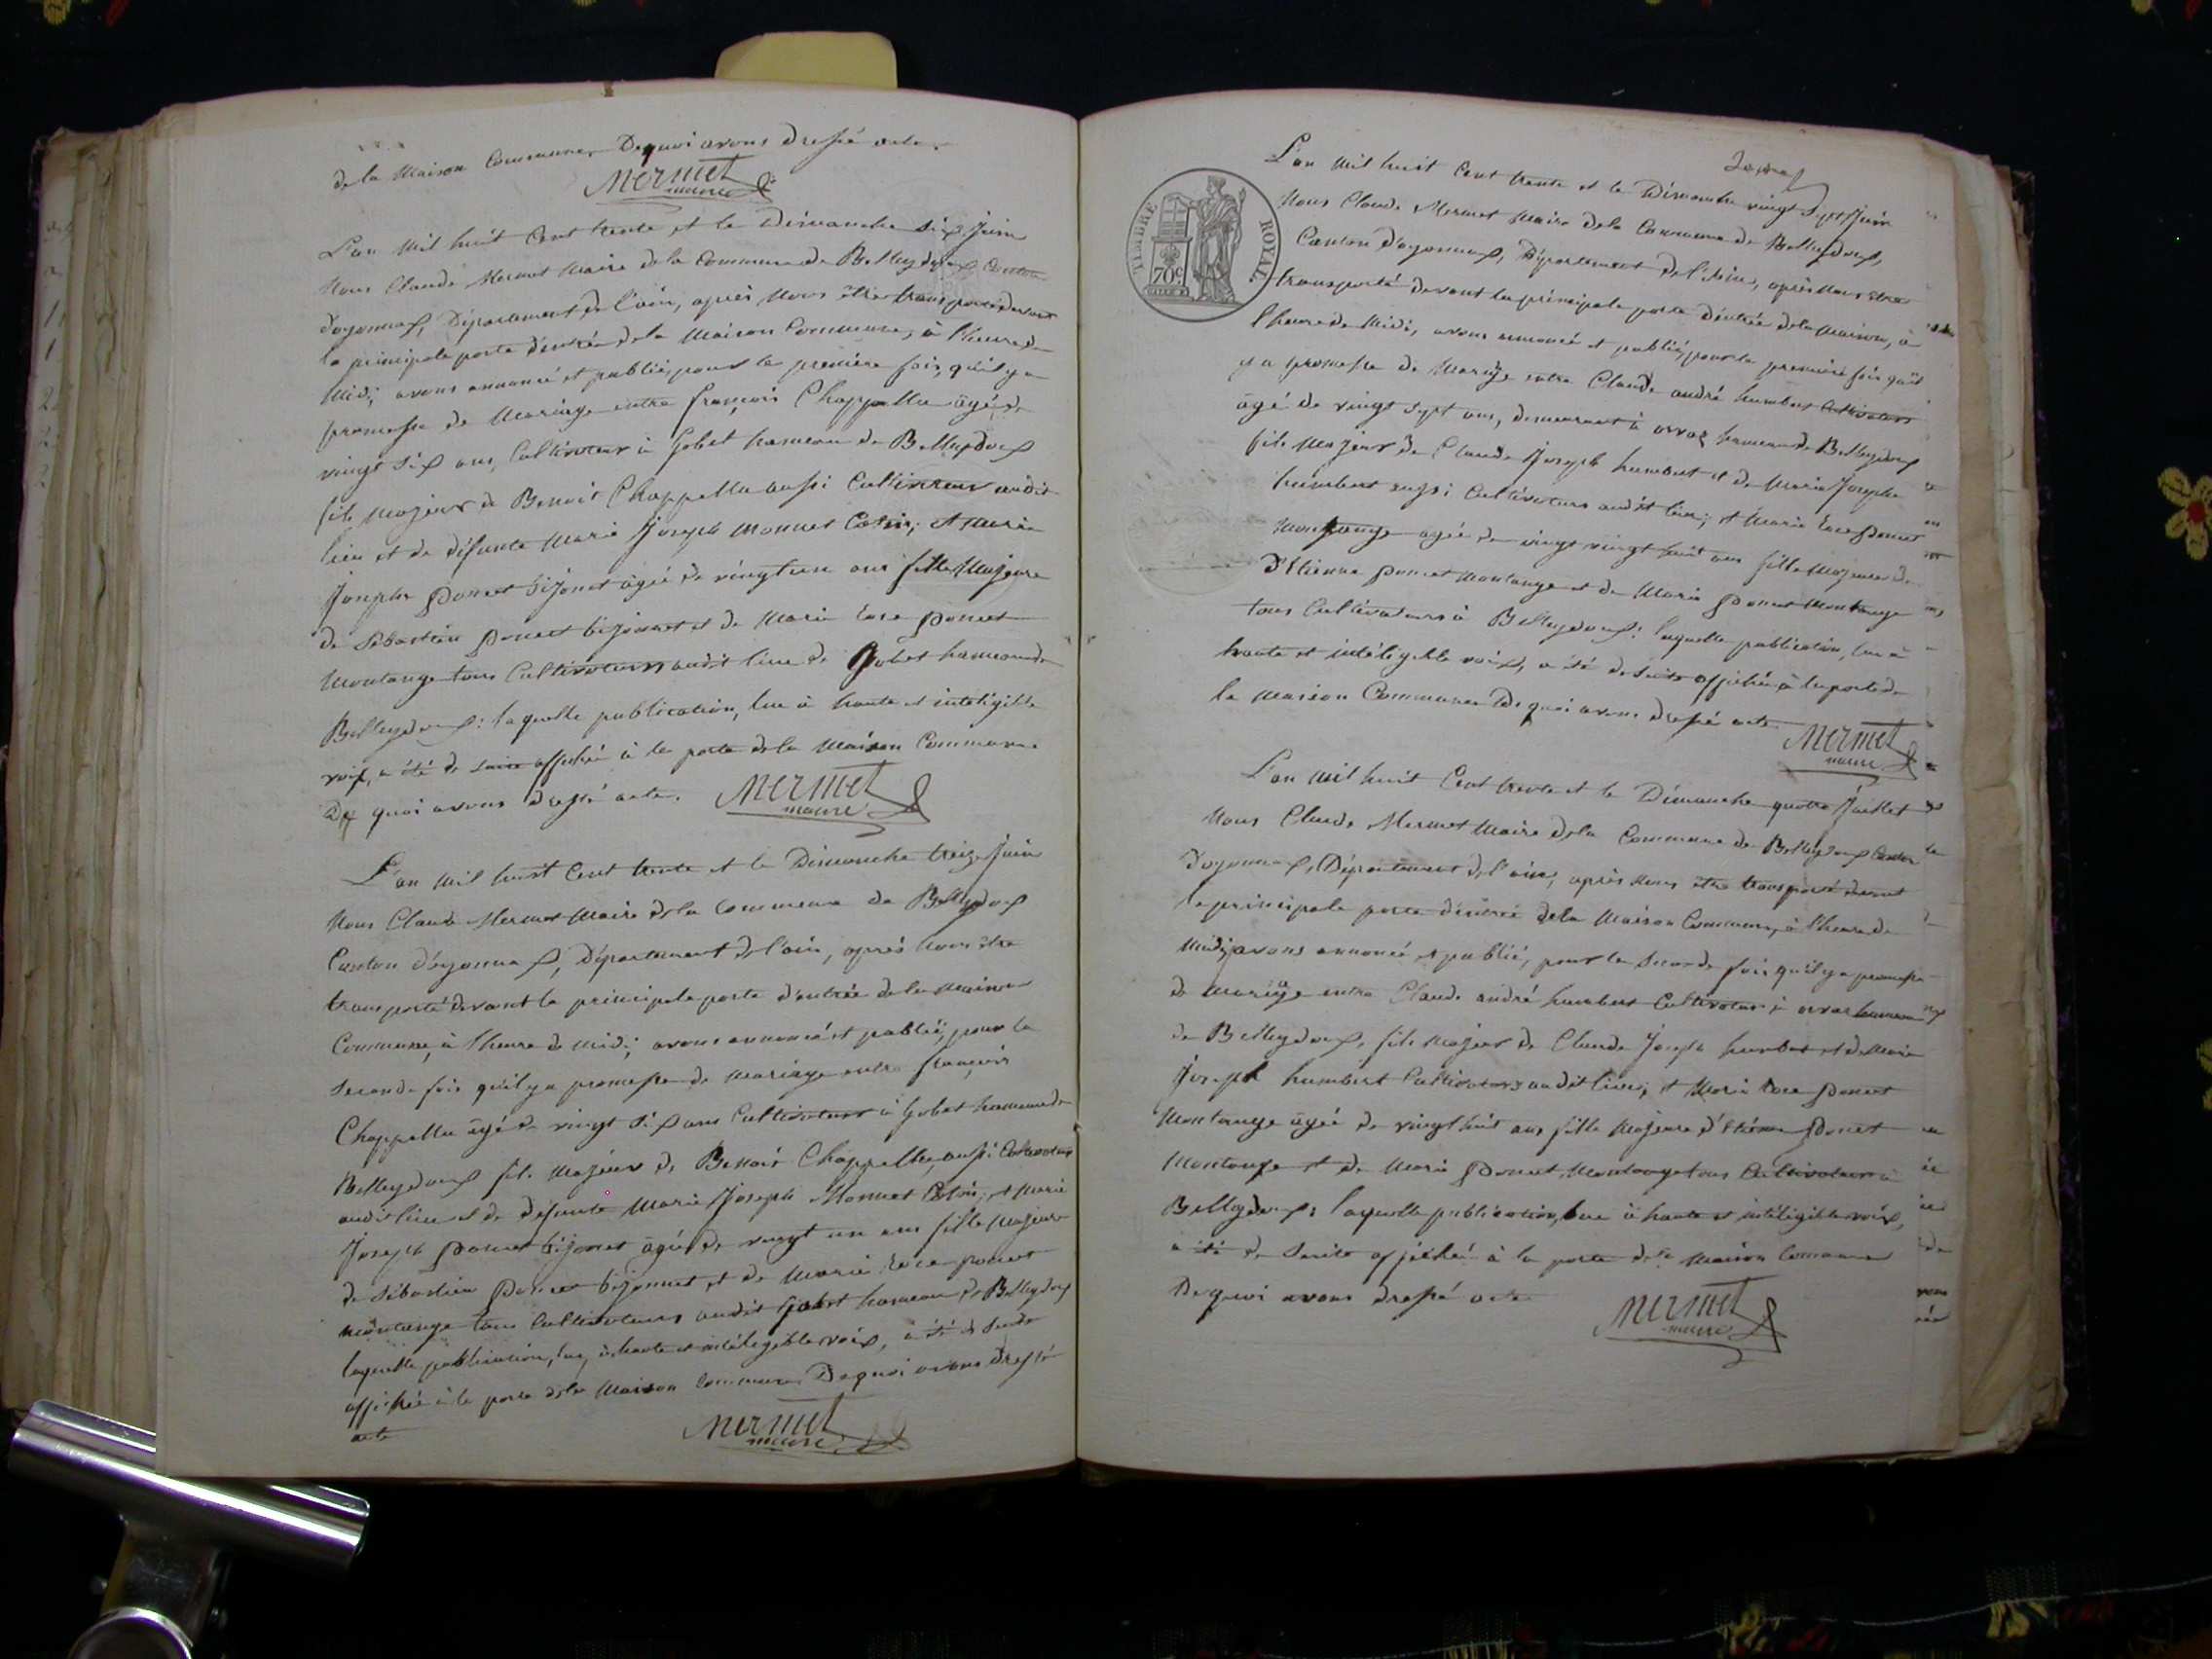 de la Maison Commune, De quoi avons dressé acte.
Mermet
maire
L'an Mil huit Cent trente et le Dimanche six Juin
Nous Claude Mermet Maire de la Commune de Belleydoux Canton
d'oyonnax, Département de l'ain, après Nous être transporté devant
la principale porte d'entrée de la Maison Commune, à l'heure de
Midi, avons annoncé et publié, pour la première fois, qu'il y a
promesse de Mariage entre françois Chappellu âgé de
vingt six ans, Cultivateur à Gobet hameau de Belleydoux
fils Majeur de Benoit Chappellu aussi Cultivateur audit
lieu et de défunte Marie Joseph Monnet Cotin; et Marie
Josephe Poncet bijonet âgée de vingt un ans fille Majeure
de Sébastien Poncet bijonnet et de Marie Rose Poncet
Montange tous Cultivateurs audit lieu de Gobet hameau de
Belleydoux: laquelle publication, lue à haute et inteligible
voix, a été de suite affichée à la porte de la Maison Commune
De quoi avons dressé acte.
Mermet
maire
L'an Mil huit Cent trente et le Dimanche treize Juin
Nous Claude Mermet Maire de la Commune de Belleydoux
Canton d'oyonnax, Département de l'ain, après Nous être
transporté devant la principale porte d'entrée de la Maison
Commune, à l'heure de midi; avons annoncé et publié, pour la
Seconde fois qu'il y a promesse de Mariage entre françois
Chappellu âgé de vingt six ans Cultivateur à Gobet hameau de
Belleydoux fils Majeur de Benoit Chappellu aussi Cultivateur
audit lieu et de défunte Marie Joseph Monnet Cotin; et Marie
Joseph Poncet bijonet âgée de vingt un ans fille Majeure
de Sébastien Poncet bijonnet et de Marie Rose Poncet
Montange tous Cultivateurs audit Gobet hameau de Belleydoux
laquelle publication, lue, à haute et intéligible voix, a été de suite
affichée à la porte de la Maison Commune De quoi avons dressé
acte
Mermet
maire
TIMBRE ROYAL
70 c.
L'an Mil huit Cent trente et le Dimanche vingt sept Juin
Nous Claude Mermet Maire de la Commune de Belleydoux,
Canton d'oyonnax, Département de l'Ain, après Nous être
transporté devant la principale porte d'entrée de la Maison, à
l'heure de Midi, avons annoncé et publié, pour la première fois qu'il
y a promesse de Mariage entre Claude andré humbert Cultivateur
âgé de vingt sept ans, demeurant à orvaz hameau de Belleydoux
fils Majeur de Claude Joseph humbert et de Marie Josephe
humbert aussi Cultivateurs audit lieu; et Marie Rose Poncet
Montange agée de vingt vingt huit ans fille Majeure de
D'Etienne Poncet Montange et de Marie Poncet Montange
tous Cultivateurs à Belleydoux: laquelle publication, lue à
haute et intéligible voix, a été de suite affichée à la porte de
la Maison Commune De quoi avons dressé acte
Mermet
maire
L'an Mil huit Cent trente et le Dimanche quatre Juillet
Nous Claude Mermet Maire de la Commune de Belleydoux Canton
d'oyonnax, Département de l'ain, après Nous être transporté devant
la principale porte d'entrée de la Maison Commune, à l'heure de
Midi, avons annoncé et publié, pour la Seconde fois qu'il y a promesse
de Mariage entre Claude andré humbert Cultivateur à orvaz hameau
de Belleydoux, fils Majeur de Claude Joseph humbert et de Marie
Joseph humbert Cultivateurs audit lieu; et Marie Rose Poncet
Montange âgée de vingt huit ans fille Majeure d'Etienne Poncet
Montange et de Marie Poncet Montange tous Cultivateurs à
Belleydoux: laquelle publication, lue à haute et intéligible voix,
a été de suite affichée à la porte de la Maison Commune
De quoi avons dressé acte
Mermet
maire